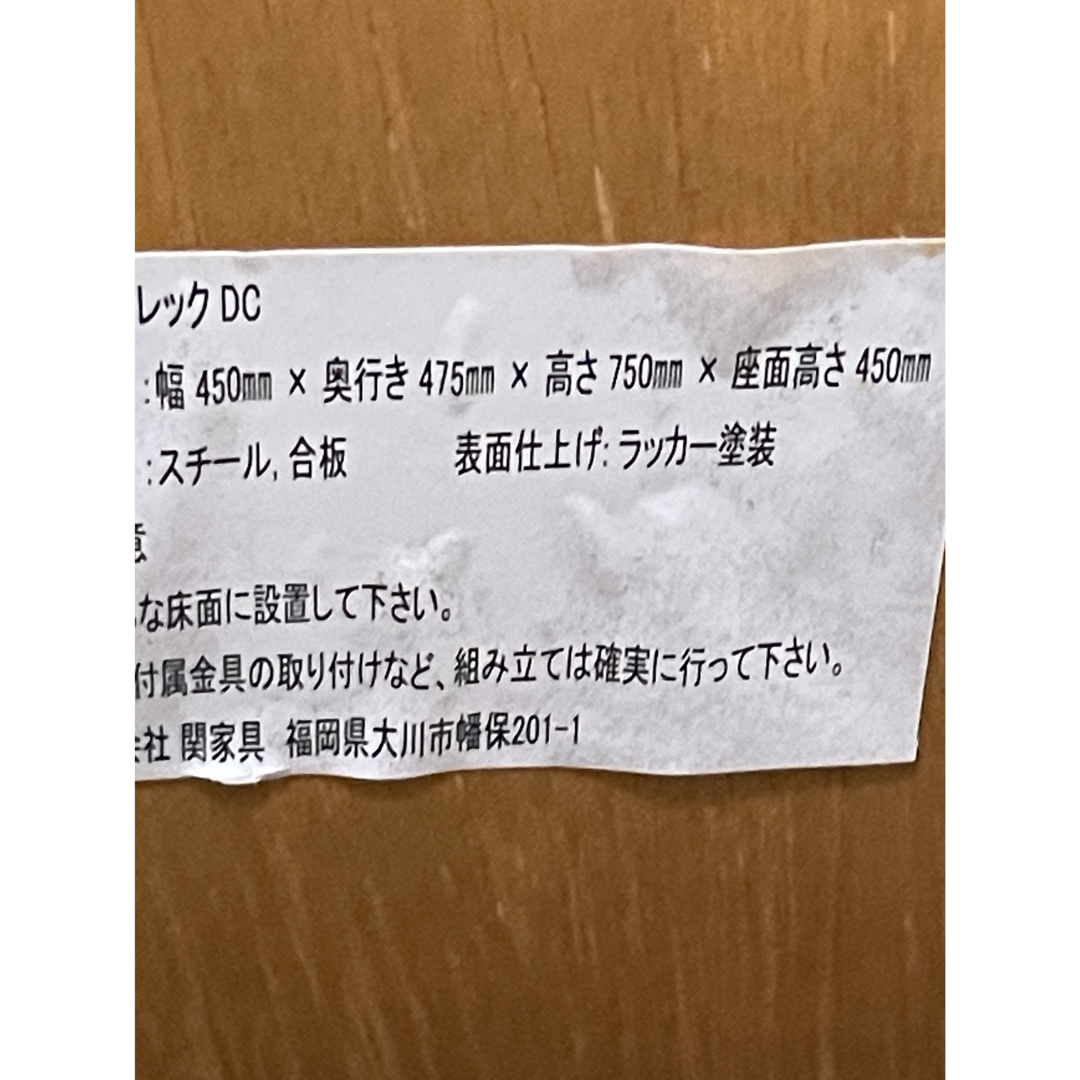 レック DC
:幅 450㎜ × 奥行き 475㎜ × 高さ 750㎜ × 座面高さ 450㎜
:スチール, 合板 表面仕上げ: ラッカー塗装
意
な床面に設置して下さい。
付属金具の取り付けなど、組み立ては確実に行って下さい。
会社 関家具 福岡県大川市幡保201-1